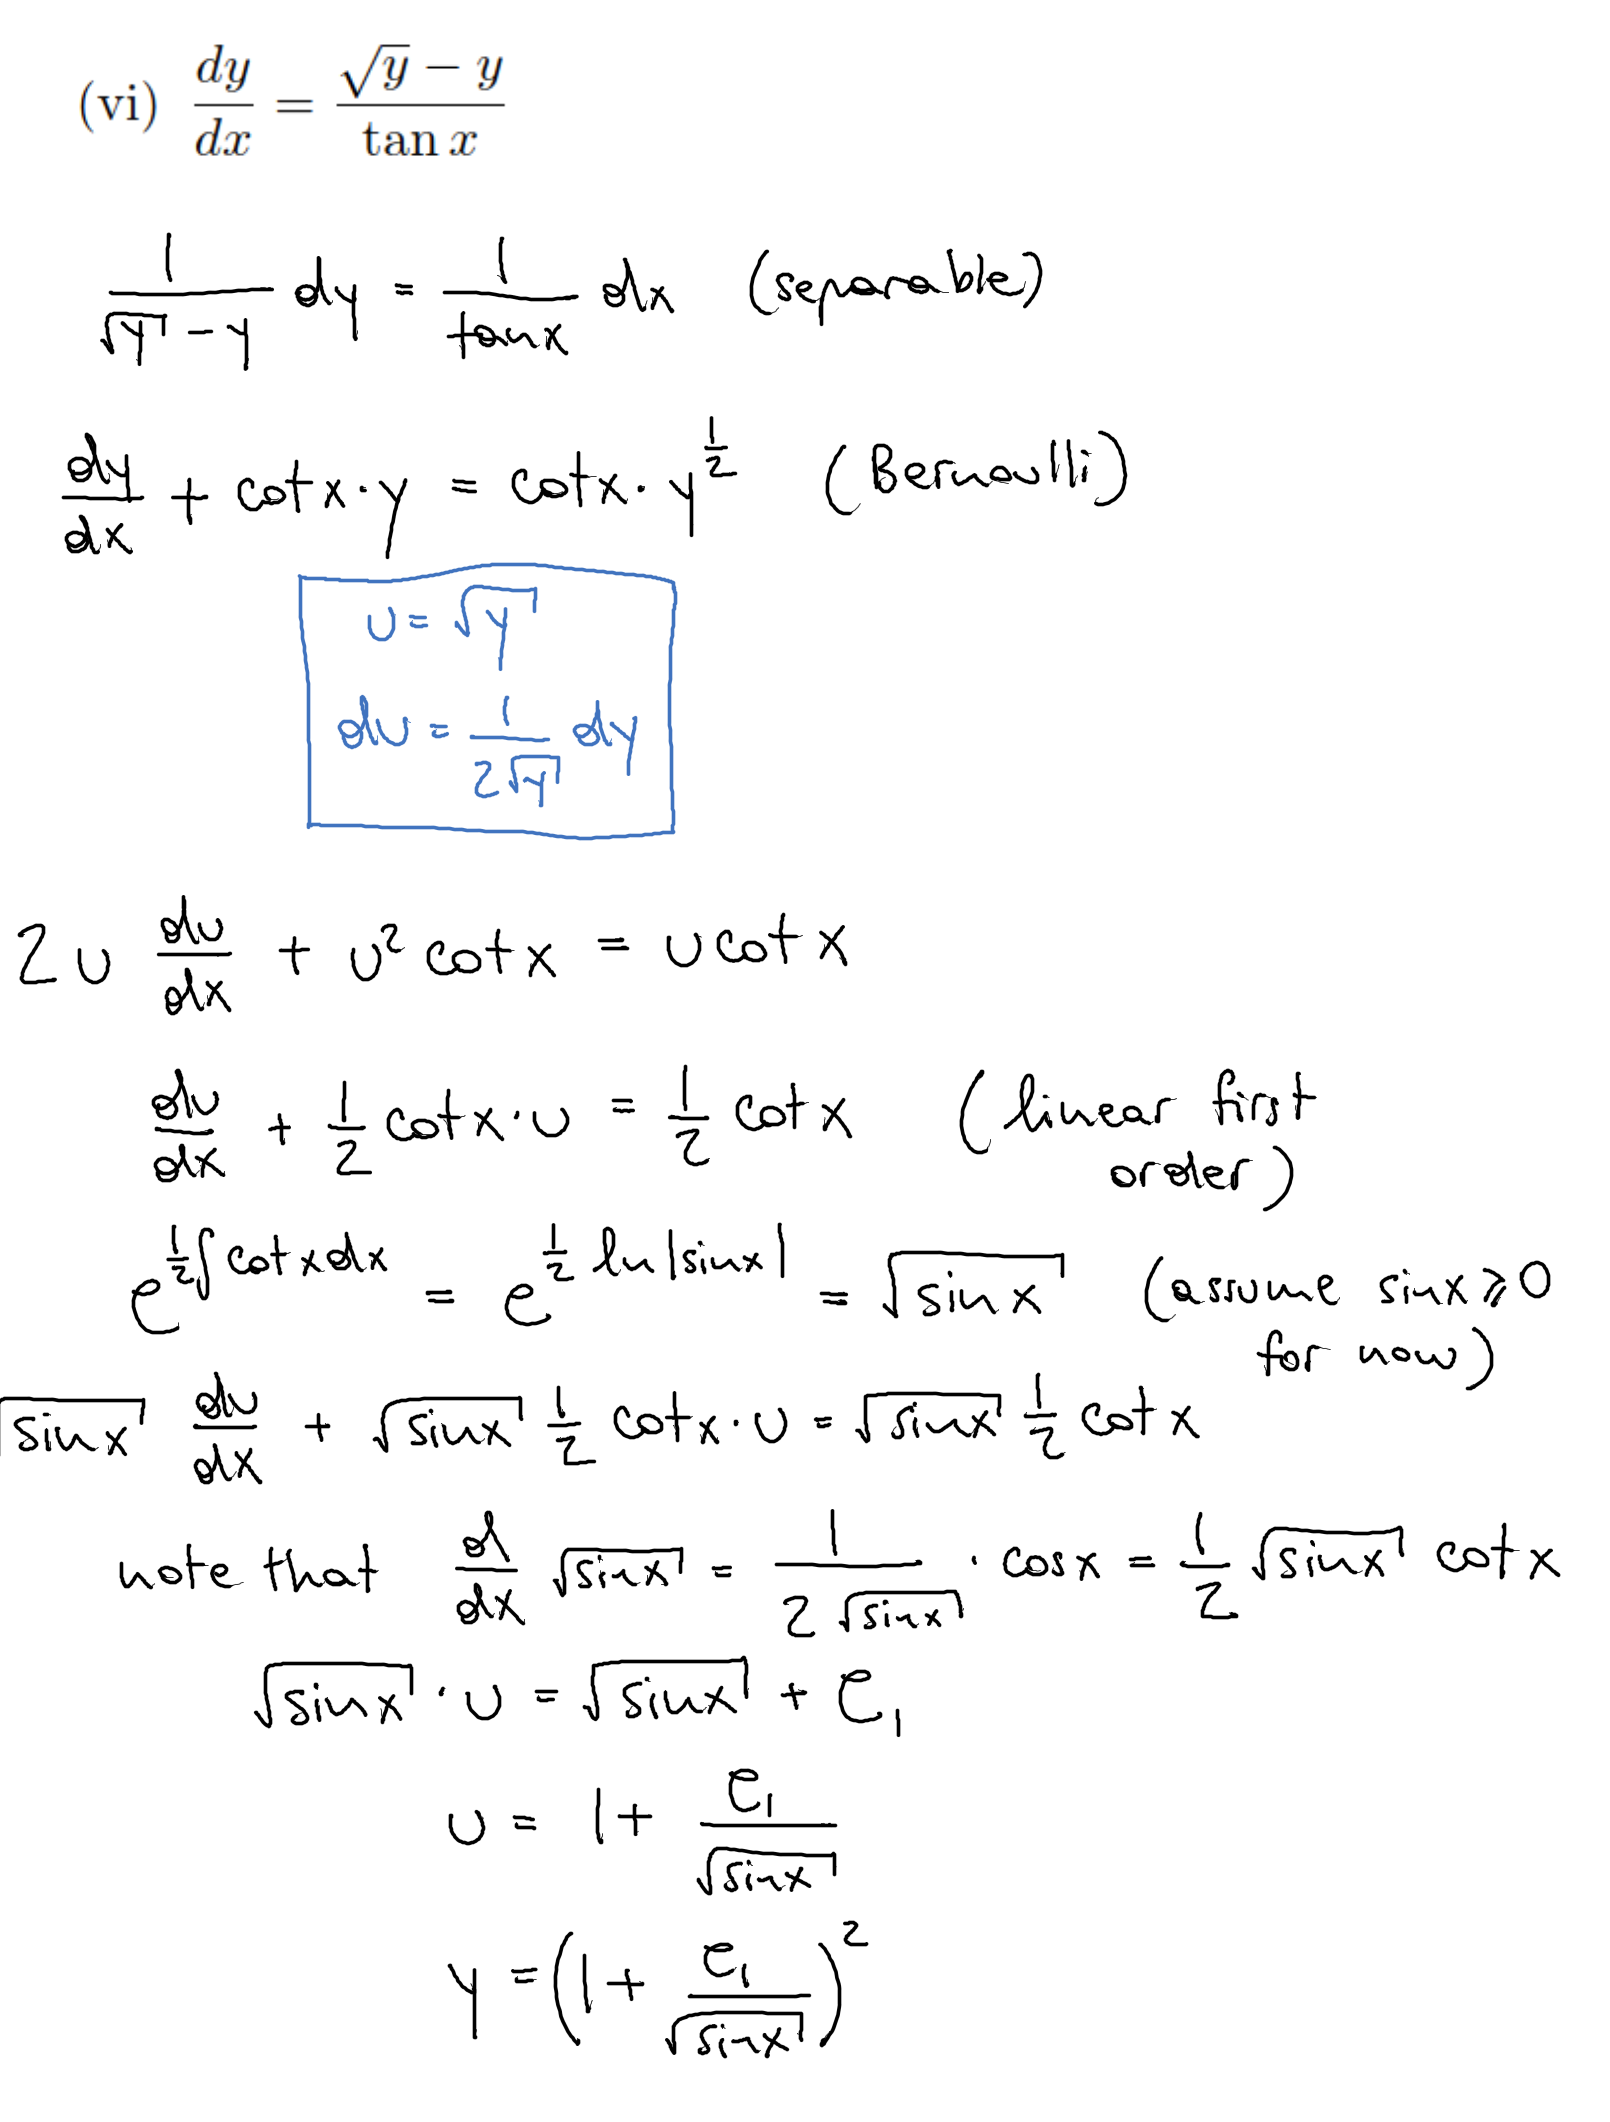 (vi) dy/dx = (√y − y)/(tan x)
1/(√y − y) dy = 1/(tanx) dx (separable)
dy/dx + cotx·y = cotx·y^(1/2) (Bernoulli)
u = √y
du = 1/(2√y) dy
2u du/dx + u² cotx = u cotx
du/dx + 1/2 cotx·u = 1/2 cotx (linear first
order)
e^(1/2 ∫cotxdx) = e^(1/2 ln|sinx|) = √(sinx) (assume sinx ⩾ 0
for now)
√(sinx) du/dx + √(sinx) 1/2 cotx·u = √(sinx) 1/2 cotx
note that d/dx √(sinx) = 1/(2√(sinx)) · cosx = 1/2 √(sinx) cotx
√(sinx)·u = √(sinx) + C₁
u = 1 + C₁/√(sinx)
y = (1 + C₁/√(sinx))²